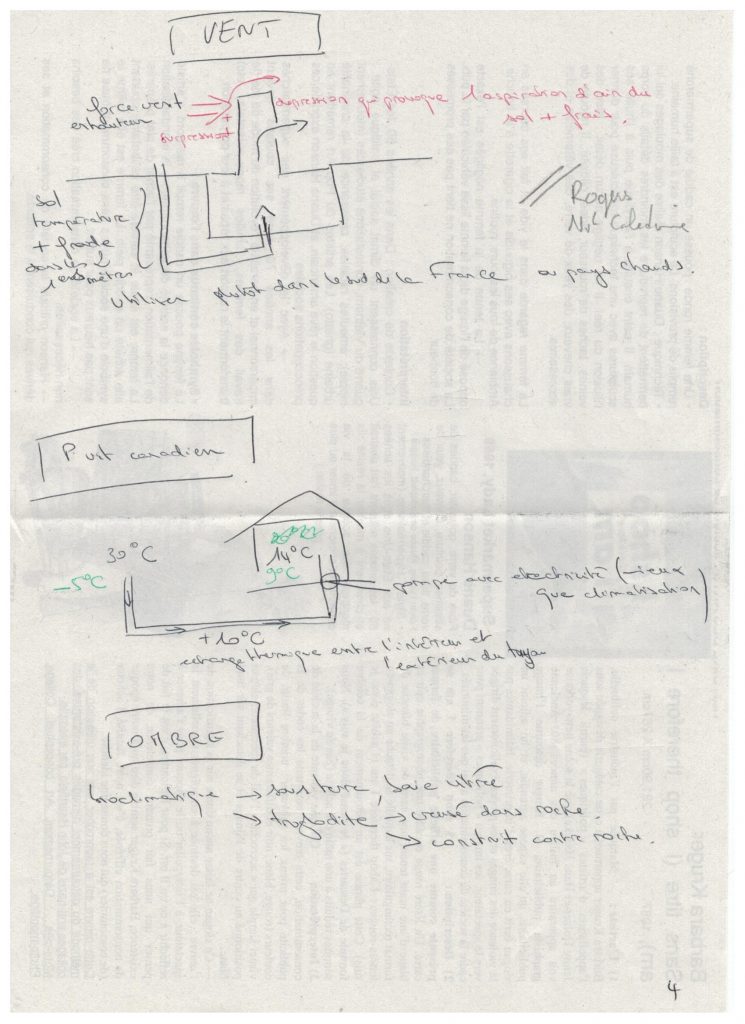 VENT
force vent
en hauteur
+
+
surpression
dépression qui provoque l'aspiration d'air du
sol + frais.
Sol
température
+ froide
dans les 2
1ers mètres
Rogers
Nvl Calédonie
utiliser plutôt dans le sud de la France ou pays chauds.
Puit canadien
30°C
-5°C
14°C
9°C
pompe avec électricité (- cieux
que climatisation)
+10°C
echange thermique entre l'intérieur et
l'extérieur du tuyau
OMBRE
bioclimatique → sous terre, baie vitrée
→ troglodite → creusé dans roche.
→ construit contre roche.
4